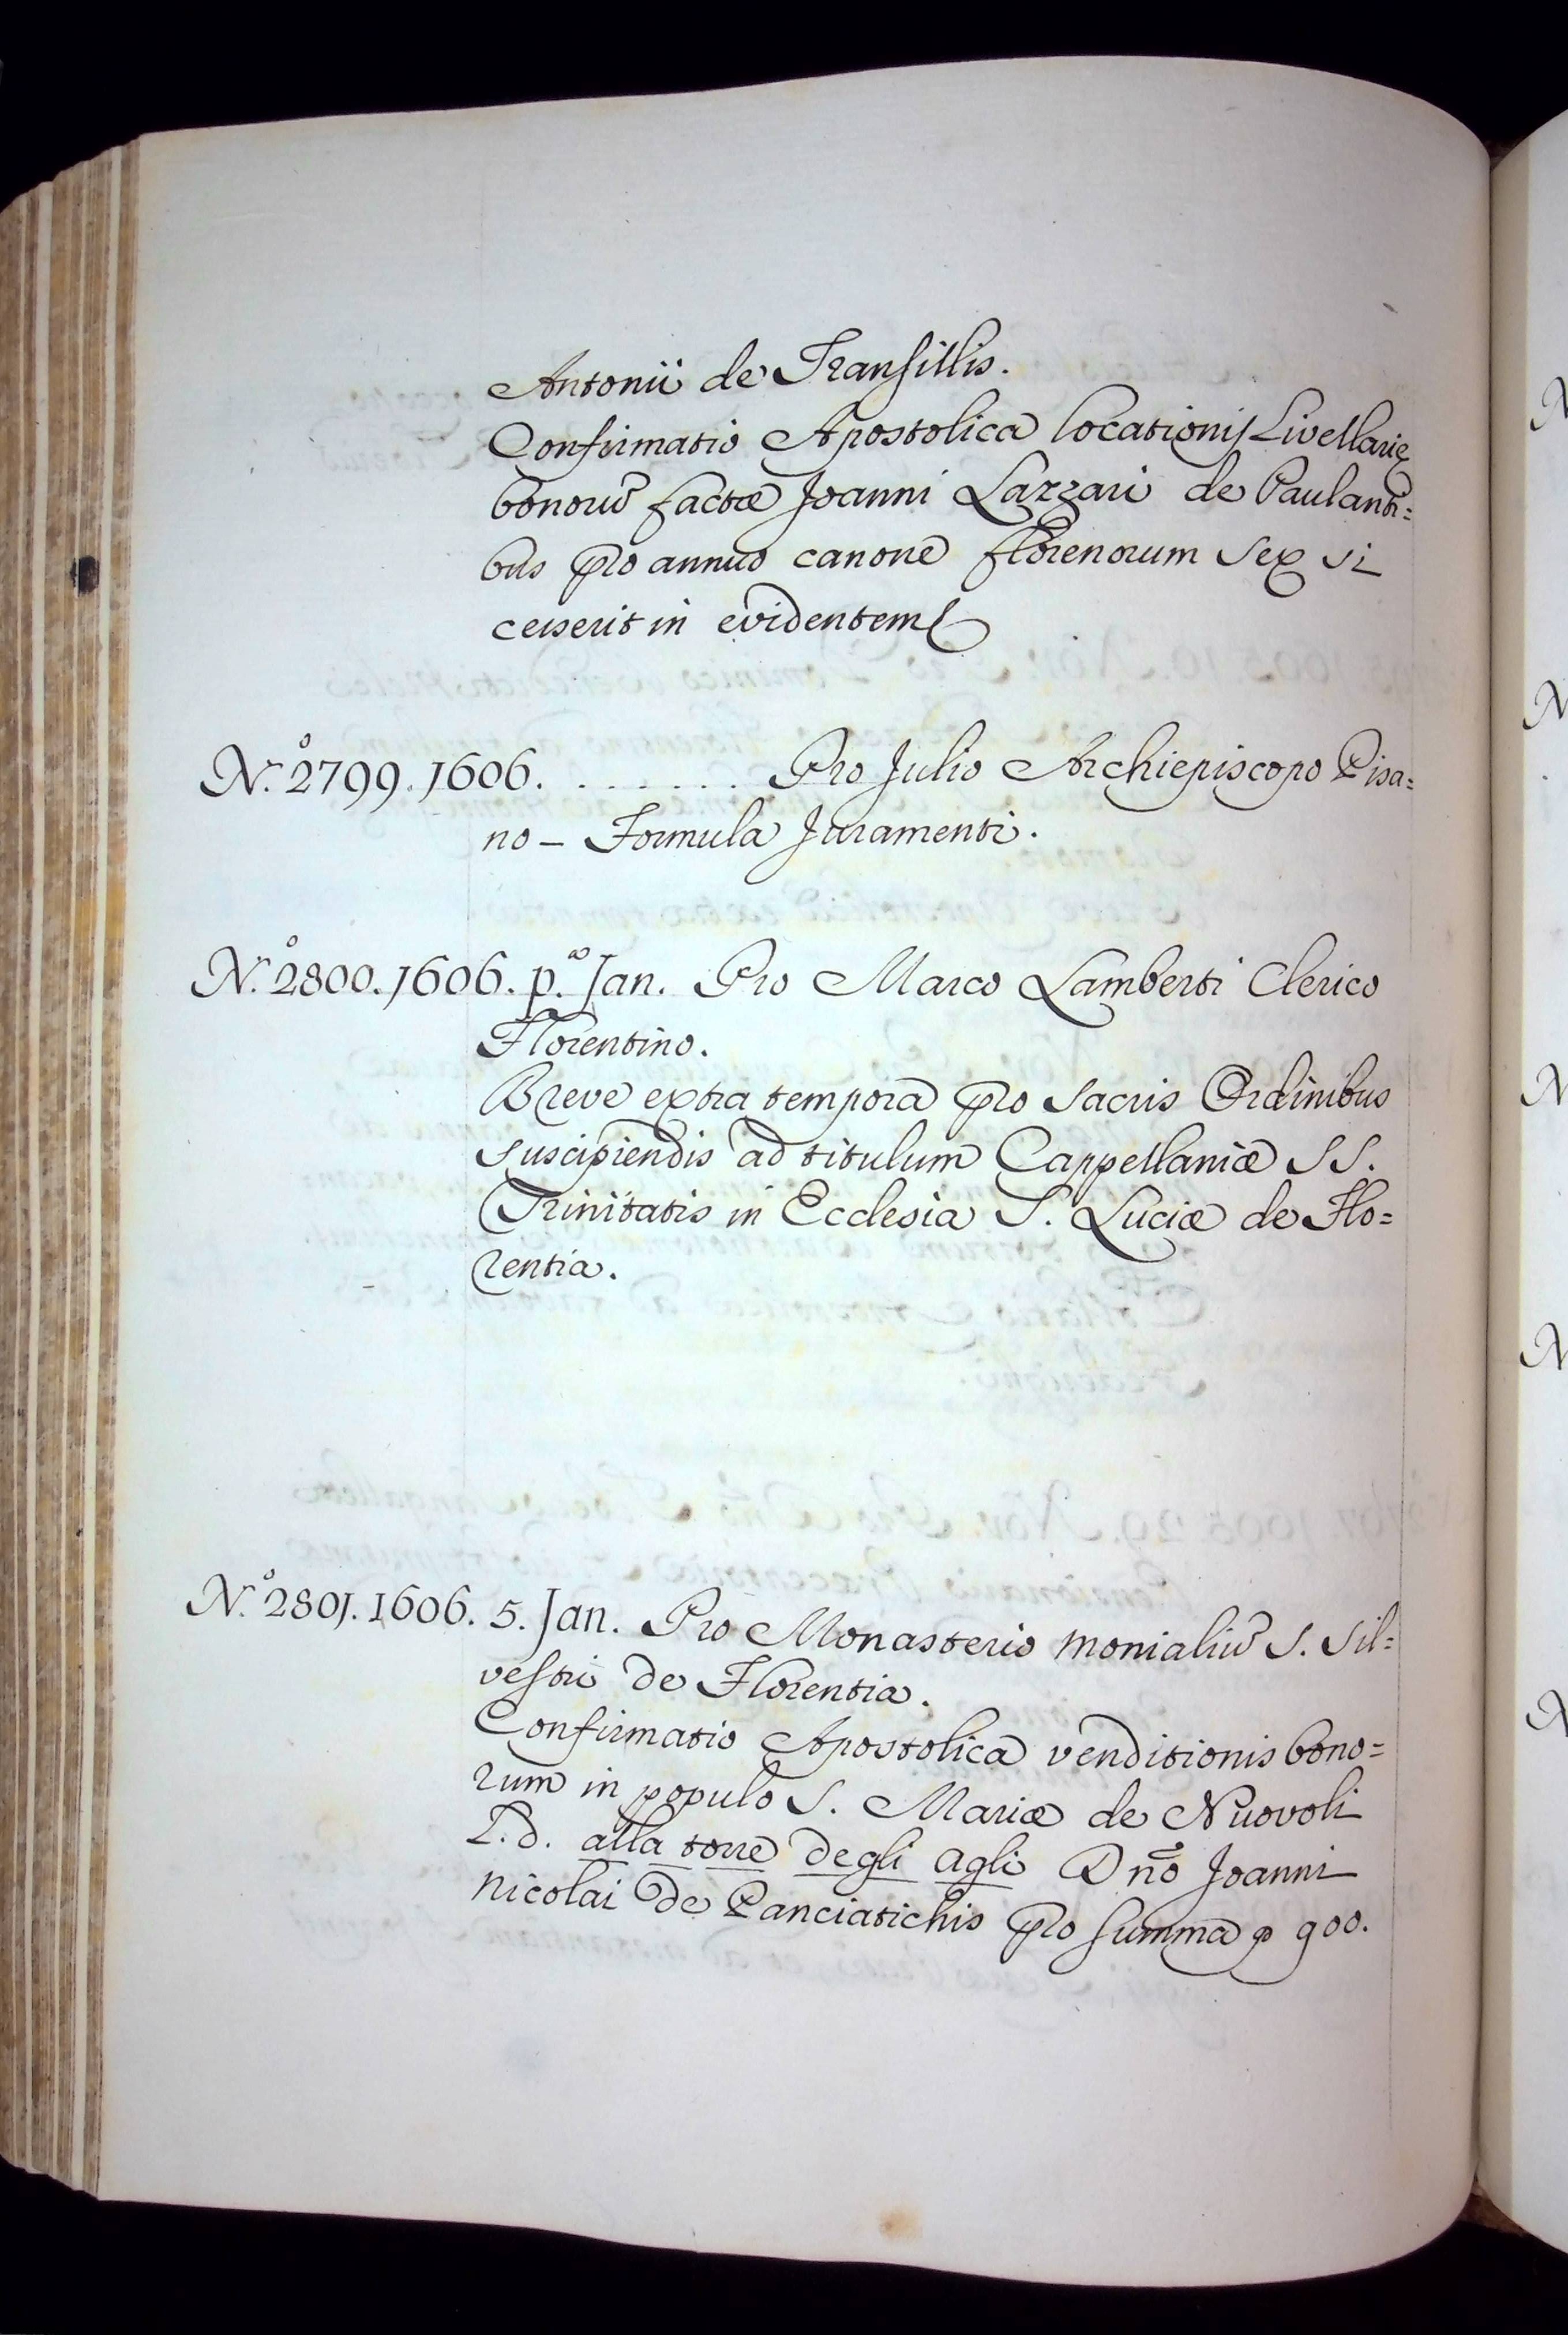 Antonii de Transillis.
Confirmatio Apostolica locationis Livellarię
bonorū factæ Joanni Lazzari de Paulanti=
bus pro annuo canone florenorum sex si
cesserit in evidentem
N.º 2799. 1606. . . . . . . . Pro Julio Archiepiscopo Pisa=
no – Formula Juramenti.
N.º 2800. 1606. p.º Jan. Pro Marco Lamberti Clerico
Florentino.
Breve extra tempora pro sacris Ordinibus
suscipiendis ad titulum Cappellaniæ SS.
Trinitatis in Ecclesia S. Luciæ de Flo=
rentia.
N.º 2801. 1606. 5. Jan. Pro Monasterio monialiū S. Sil=
vestri de Florentia.
Confirmatio Apostolica venditionis bono=
rum in populo S. Mariæ de Nuovoli
L.d. alla torre degli agli Dño Joanni
Nicolai de Panciatichis pro summa 900.